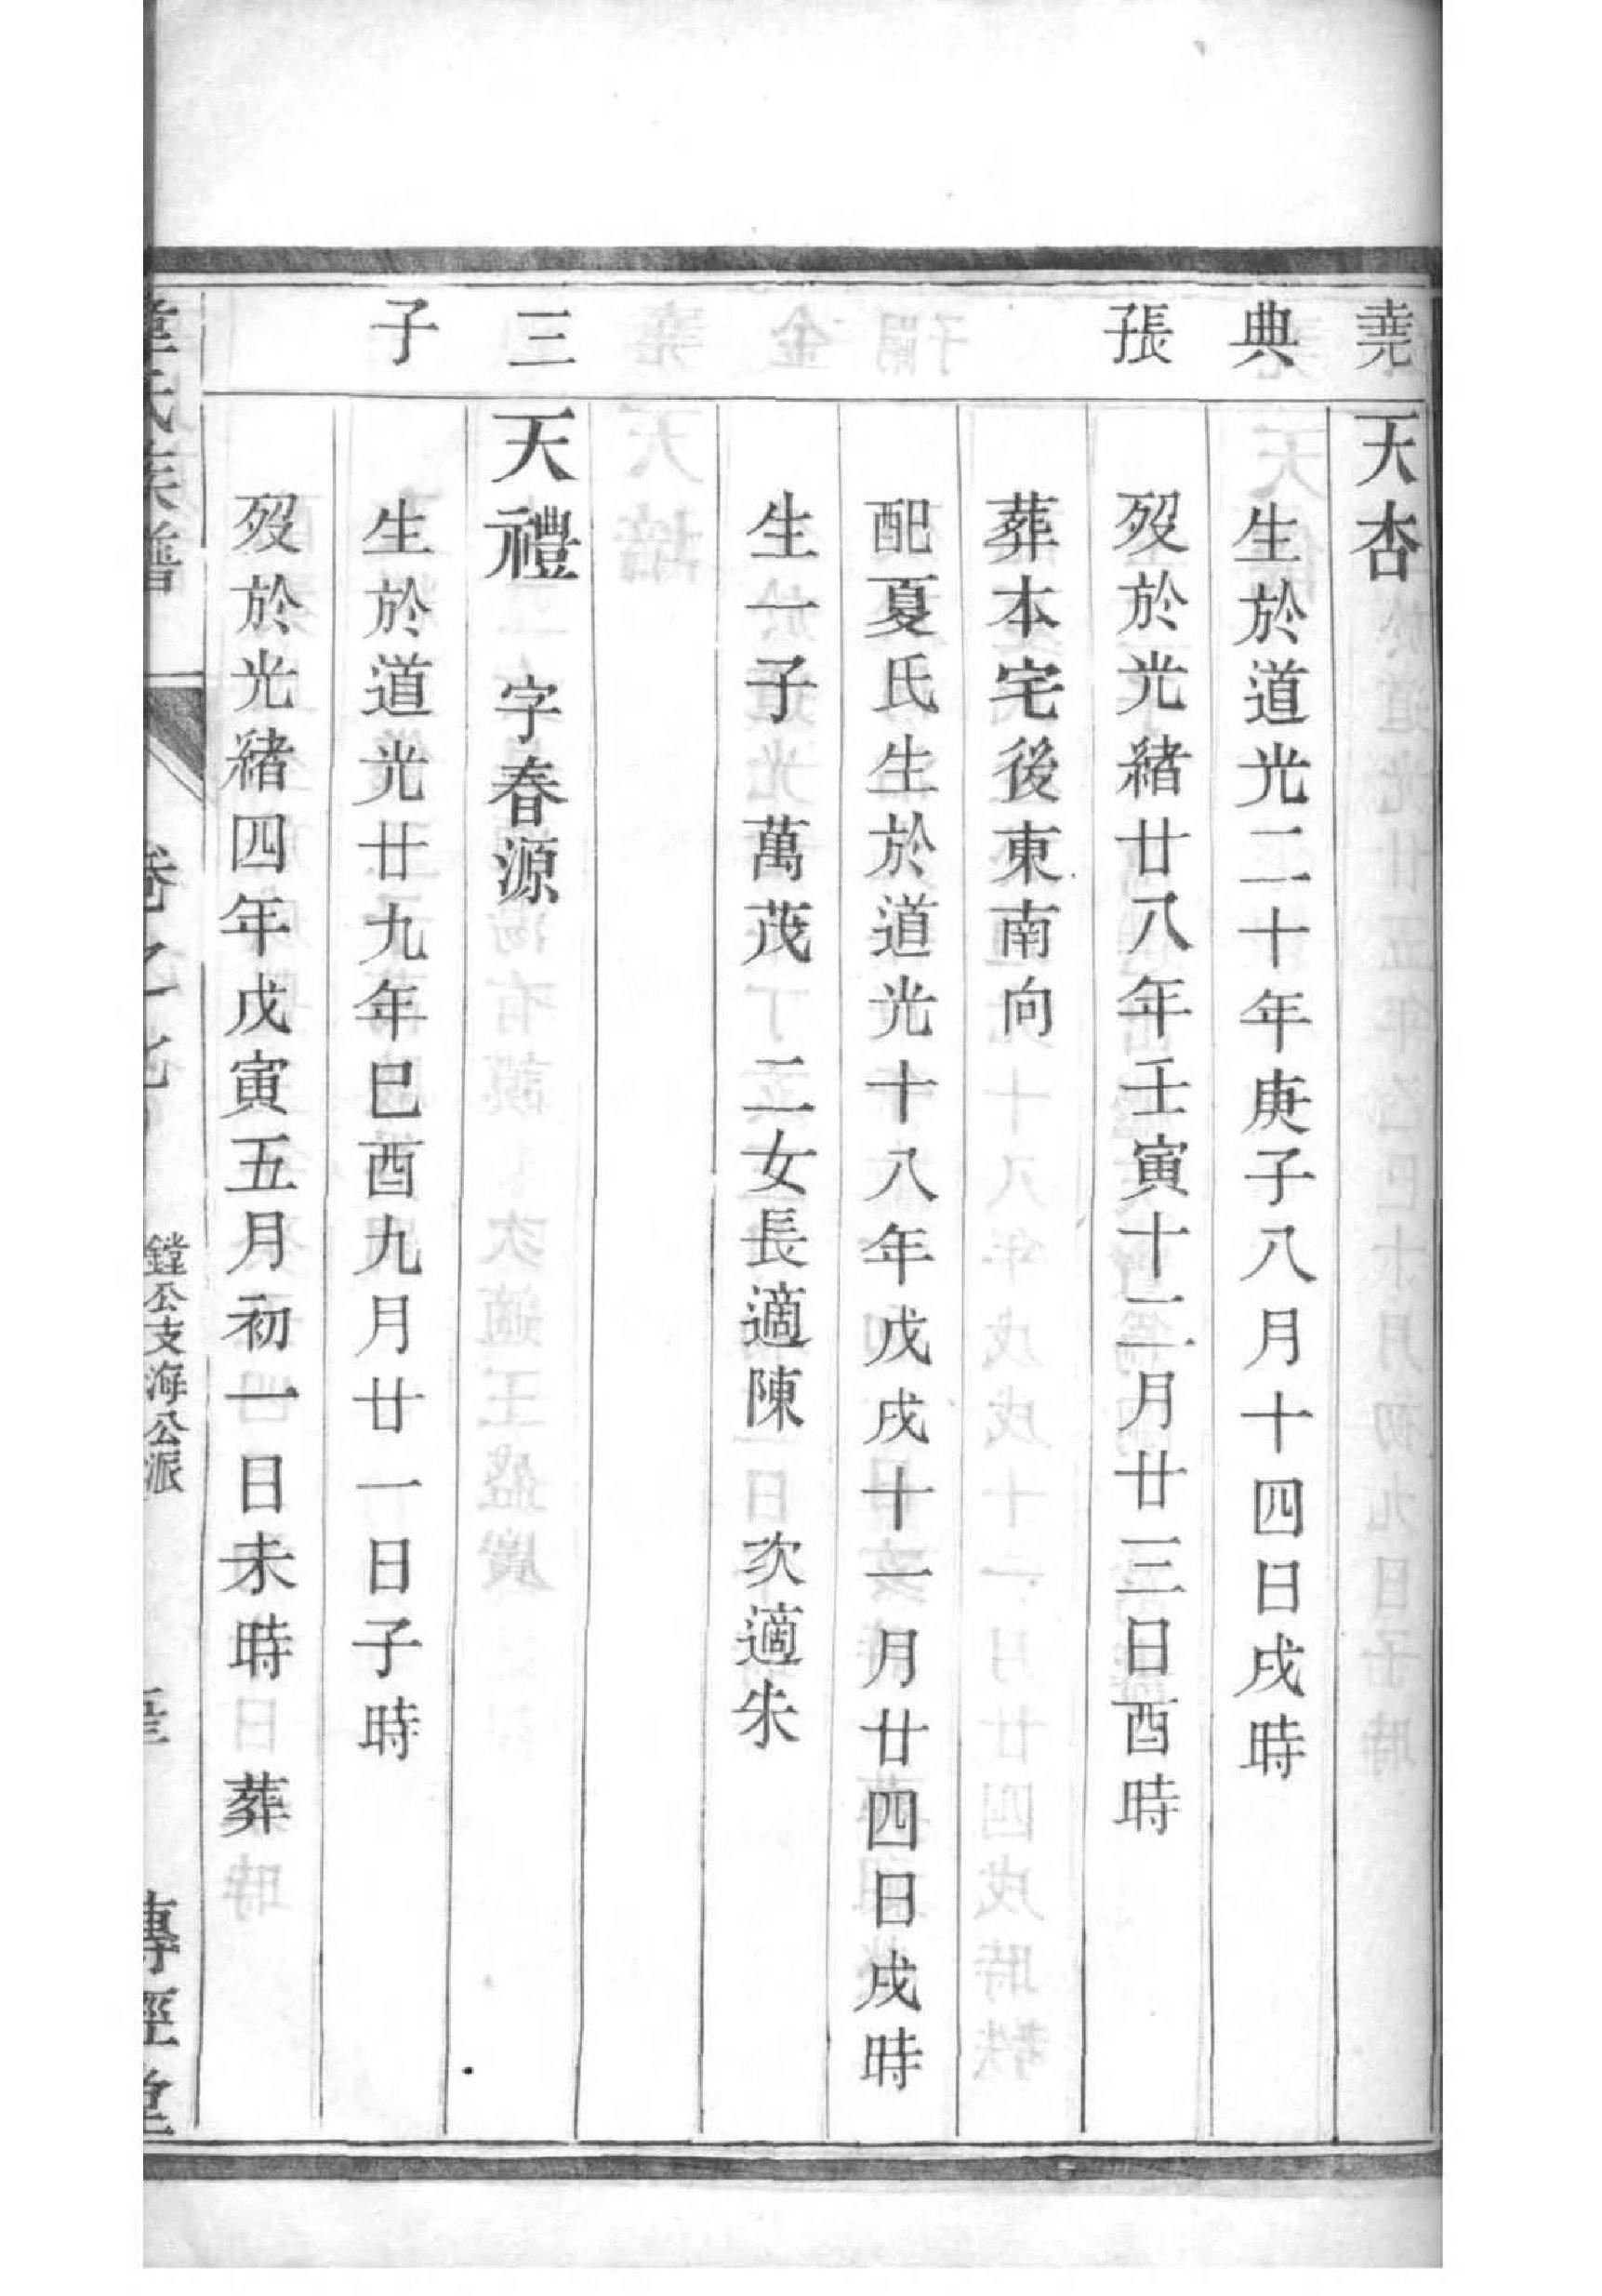 堯 天杏
典 生於道光二十年庚子八月十四日戌時
張 歿於光緒廿八年壬寅十二月廿三日酉時
葬本宅後東南向
配夏氏生於道光十八年戊戌十一月廿四日戌時
生一子 萬茂 二女長適陳 次適朱
三 天禮 字春源
子 生於道光廿九年巳酉九月廿一日子時
歿於光緒四年戊寅五月初一日未時 葬
氏族譜 卷之七 鏜公支海公派 傳經堂